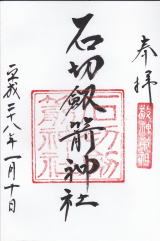 奉拝
石切劔箭神社
平成二十八年一月十日